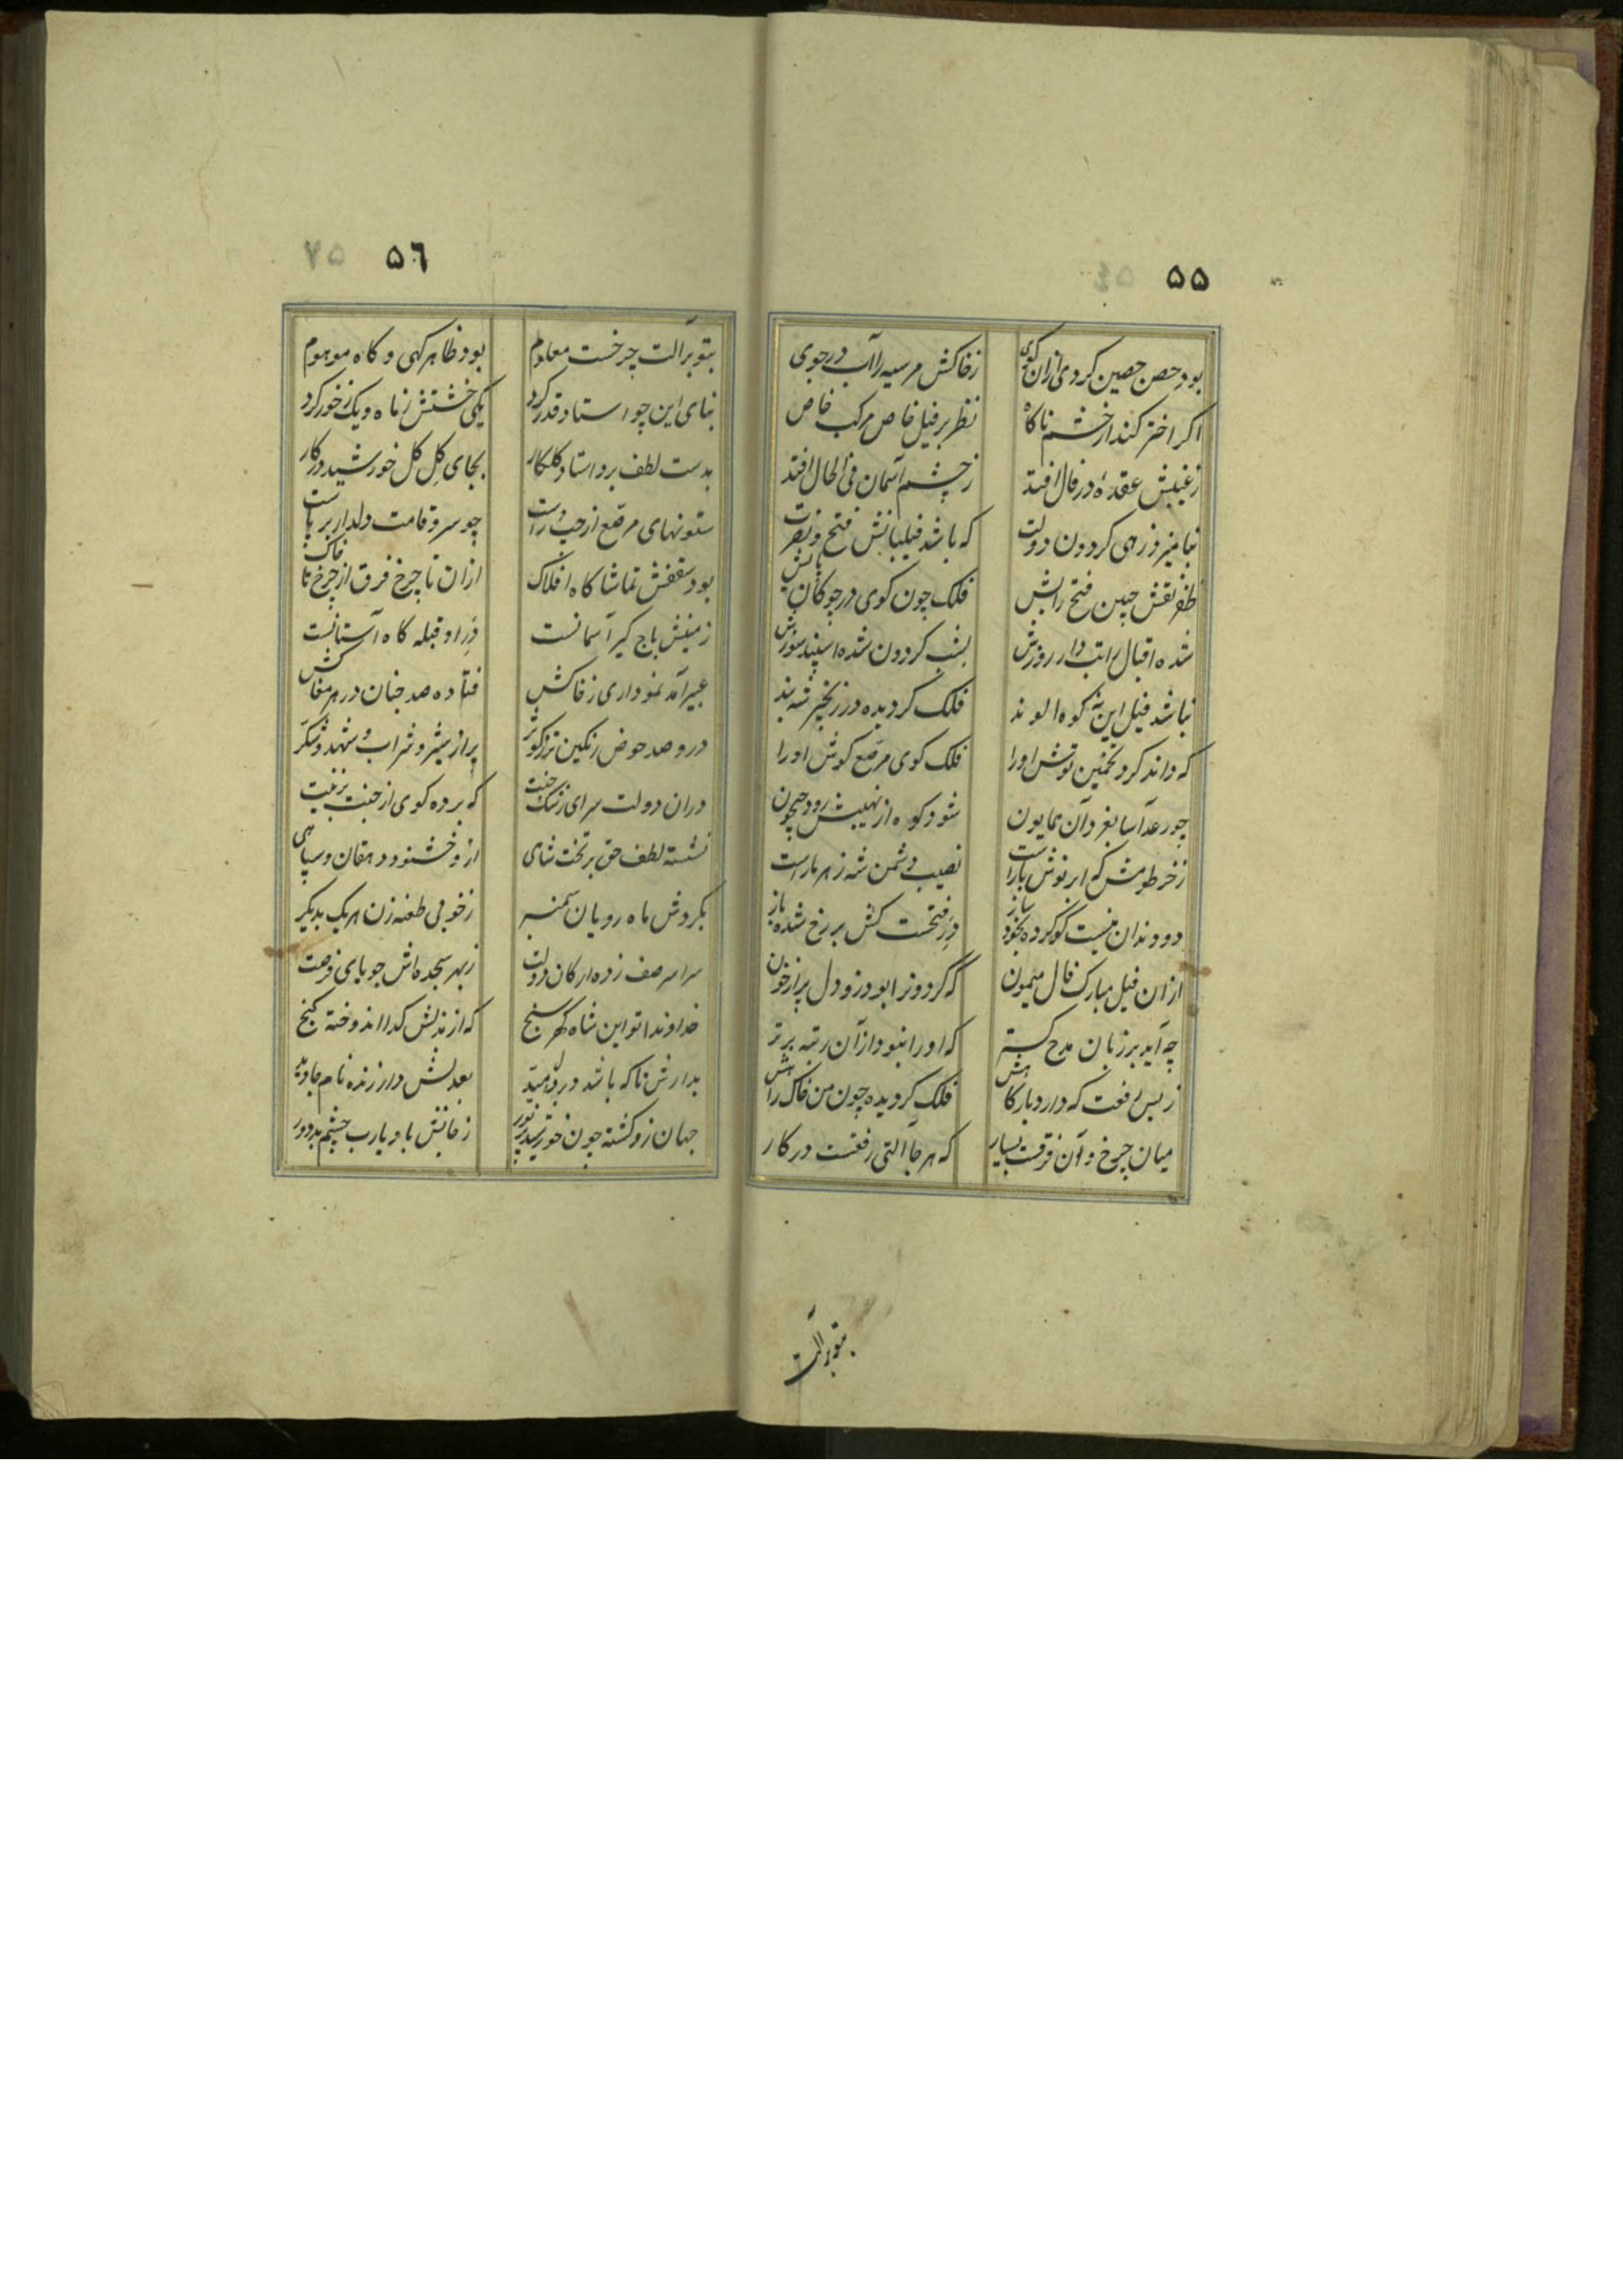 ۵۵
بود حصن حصین کردی ازان کوی زخاکش مرسیه را آب درجوی
اکر اختر کند از خشم ناکاه نظر بر فیل خاص مرکب خاص
زغیبش عقدهٔ در فال افتد زچشم آسمان فی الحال افتد
بنامیزد زهی کردون دولت که باشد فیلبانش فتح و نصرت
ظفر نقش جبین فتح رایش فلک چون کوی در چوکان پایش
شده اقبال راتب دار روزش بشب کردون شده اسپند سوزش
نباشد فیل این نه کوه الوند فلک کردیده در زنجیر شه بند
که داند کرد تخمین توش اورا فلک کوی مرصع کوش اورا
چو رعدآسا بغرد آن همایون شود کوه از نهیبش رود جیحون
زخرطومش که ابر نوش باراست نصیب دشمن شه زهر ماراست
دو دندان نیست کو کرده بخود ساز در فتحست کش بر رخ شده باز
ازان فیل مبارک فال میمون که کردونرا بود زو دل پر از خون
چه آید بر زبان مدح کستر که اورا نبود ازآن رتبه برتر
زبس رفعت که دارد بارکاهش فلک کردیده چون من خاک راهش
میان چرخ و آن فرقت بسیار که هرجا آلتی رفعست درکار
بتو برآلت
۵٦ ۷۵
بتو برآلت چرخست معلوم بود ظاهر کهی و کاه موهوم
بنای این چو استاد قدر کرد یکی خشتش زماه و یک زخور کرد
بدست لطف برد استاد کلکار بجای کل کل خورشید درکار
ستونهای مرصع از چپ و راست چو سرو قامت دلدار برپاست
بود سقفش تماشاکاه افلاک ازان تا چرخ فرق از چرخ تا خاک
زمینش باج کیر آسمانست در او قبله کاه آستانست
عبیر آمد نموداری زخاکش فتاده صد جنان در هر مغاکش
درو صد حوض رنکین تر زکوثر پر از شیر و شراب و شهد و شکر
دران دولت سرای رشک جنت که برده کوی از جنت بزینت
نشسته لطف حق بر تخت شاهی ازو خشنود دهقان و سپاهی
بکردش ماه رویان سمنبر زخوبی طعنه زن هریک بدیکر
سراسر صف زده ارکان دولت زبهر سجده اش جویای فرصت
خداوندا تو این شاه کهر سنج که از بذلش کدا اندوخته کنج
بدارش تا که باشد در دل امید بعدلش دار زنده نام جاوید
جهان زو کشته چون خورشید پرنور زخانش باد یارب چشم بد دور